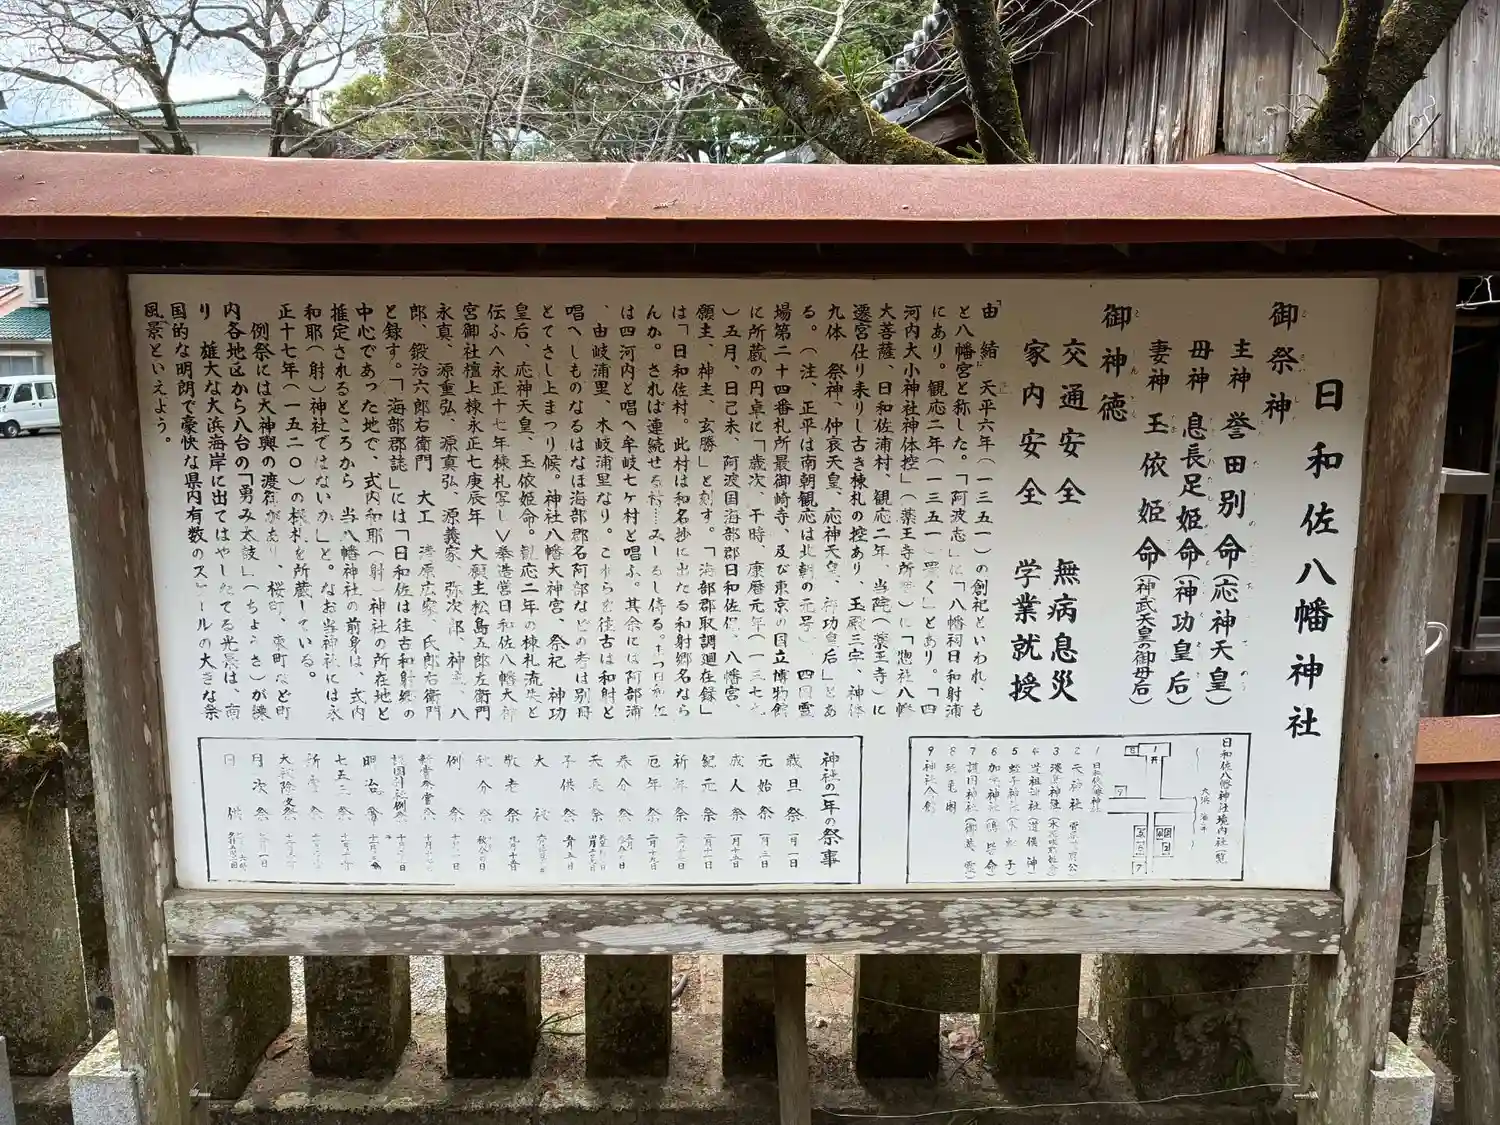 日和佐八幡神社
御祭神
主神 誉田別命(応神天皇)
母神 息長足姫命(神功皇后)
妻神 玉依姫命(神武天皇の御母后)
御神徳
交通安全 無病息災
家内安全 学業就授
由緒 天平六年(一三五一)の創祀といわれ、も
と八幡宮と称した。「阿波志」に「八幡祠日和射浦
にあり。観応二年(一三五一)置く」とあり。「四
河内大小神社神体控」(薬王寺所蔵)に「惣社八幡
大菩薩、日和佐浦村、観応二年、当院(薬王寺)に
遷宮仕り来りし古き棟札の控あり、玉殿三宇、神体
九体 祭神、仲哀天皇、応神天皇、神功皇后」とあ
る。(注、正平は南朝観応は北朝の元号) 四国霊
場第二十四番札所最御崎寺、及び東京の国立博物館
に所蔵の円卓に「歳次、干時、康暦元年(一三七九
)五月、日己未、阿波国海部郡日和佐保、八幡宮、
願主、神主、玄勝」と刻す。「海部郡取調廻在録」
は「日和佐村。此村は和名抄に出たる和射郷名なら
んか。されば連続せる
は四河内と唱へ牟岐七ケ村と唱ふ。其余には阿部浦
、由岐浦里、木岐浦里なり。これらを往古は和射と
唱へしものなるはなほ海部郡名阿部などの考は別冊
とてさし上まつり候。神社八幡大神宮、祭祀 神功
皇后、応神天皇、玉依姫命。観応二年の棟札流失と
伝ふ〈永正十七年棟札写し〉奉造営日和佐八幡大神
宮御社檀上棟永正七庚辰年 大願主松島五郎左衛門
永真、源重弘、源真弘、源義家、弥次郎、神主、八
郎、鍛治六郎右衛門 大工 清原広家、氏郎右衛門
と録す。「海部郡誌」には「日和佐は往古和射郷の
中心であった地で、式内和耶(射)神社の所在地と
推定されるところから、当八幡神社の前身は、式内
和耶(射)神社ではないか」と。なお当神社には永
正十七年(一五二〇)の棟札を所蔵している。
例祭には大神輿の渡御があり、桜町、東町など町
内各地区から八台の「勇み太鼓」(ちょうさ)が練
り 雄大な大浜海岸に出てはやしたてる光景は、南
国的な明朗で豪快な県内有数のスケールの大きな祭
風景といえよう。
日和佐八幡神社境内社一覧
大浜 海岸
1 日和佐八幡神社
2 天神社
3
4 道祖神社(道祖神)
5 蛭子神社(水蛭子)
6 加茂神社
7 護国神社(御英霊)
8
9 神社会館
神社の一年の祭事
歳旦祭 一月一日
元始祭 一月三日
成人祭 一月十五日
紀元祭 二月十一日
祈年祭
厄年祭 二月十九日
春分祭
天長祭
子供祭 五月五日
大祓
敬老祭 九月十五日
秋分祭 秋分の日
例祭
新嘗祭当祭
護国神社例祭
明治祭
七五三祭
新嘗祭
大祓除夜祭
月次祭
日供